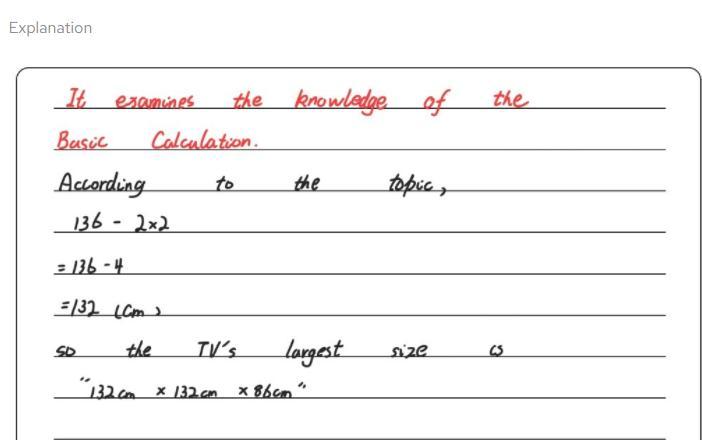 Explanation
It examines the knowledge of the
Basic Calculation.
According to the topic,
136 - 2×2
= 136 - 4
= 132 (cm)
so the TV's largest size is
"132cm × 132cm × 86cm"